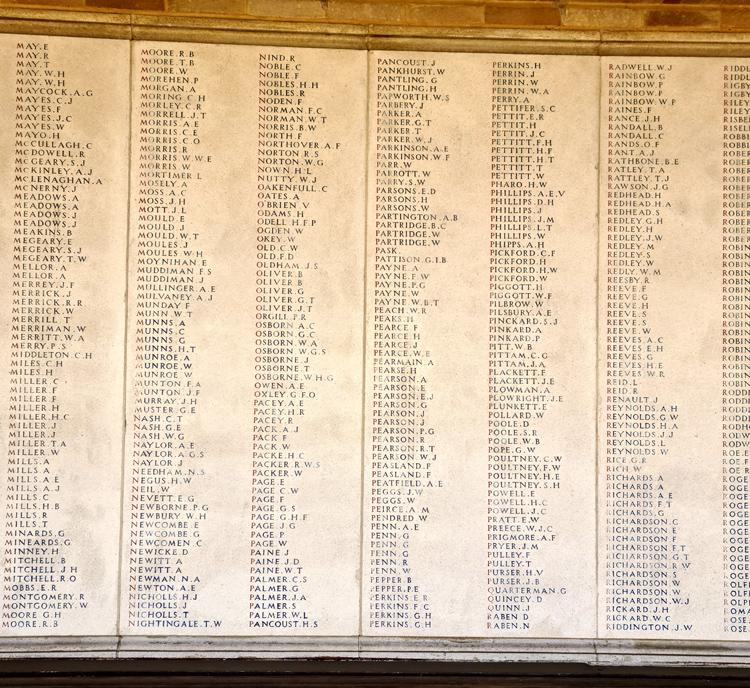 MAY.E
MAY.R
MAY.T
MAY.W.H
MAY.W.H
MAYCOCK.A.G
MAYES.C.J
MAYES.F
MAYES.J.C
MAYES.W
MAYO.H
McCULLAGH.C
McDOWELL.R
McGEARY.S.J
McKINLEY.A.J
McLENAGHAN.A
McNERNY.J
MEADOWS.A
MEADOWS.A
MEADOWS.J
MEADOWS.J
MEAKINS.B
MEGEARY.E
MEGEARY.S.J
MEGEARY.T.W
MELLOR.A
MELLOR.A
MERREY.J.F
MERRICK.J
MERRICK.R.R
MERRICK.W
MERRILL.T
MERRIMAN.W
MERRITT.W.A
MERRY.P.S
MIDDLETON.C.H
MILES.C.H
MILES.H
MILLER.C
MILLER.F
MILLER.F
MILLER.H
MILLER.H.C
MILLER.J
MILLER.J
MILLER.T.A
MILLER.W
MILLS.A
MILLS.A
MILLS.A.E
MILLS.A.J
MILLS.C
MILLS.H.B
MILLS.R
MILLS.T
MINARDS.G
MINARDS.G
MINNEY.H
MITCHELL.B
MITCHELL.J.H
MITCHELL.R.O
MOBBS.E.R
MONTGOMERY.R
MONTGOMERY.W
MOORE.G.H
MOORE.R.B
MOORE.R.B
MOORE.T.B
MOORE.W
MOREHEN.P
MORGAN.A
MORING.C.H
MORLEY.C.R
MORRELL.J.T
MORRIS.A.E
MORRIS.C.E
MORRIS.C.O
MORRIS.R
MORRIS.W.W.E
MORRIS.W
MORTIMER.L
MOSELY.A
MOSS.A.C
MOSS.J.H
MOTT.J.L
MOULD.E
MOULD.J
MOULD.W.T
MOULES.J
MOULES.W.H
MOYNIHAN.E
MUDDIMAN.F.S
MUDDIMAN.J
MULLINGER.A.E
MULVANEY.A.J
MUNDAY.F
MUNN.W.T
MUNNS.A
MUNNS.C
MUNNS.G
MUNNS.H.T
MUNROE.A
MUNROE.W
MUNROE.W
MUNTON.F.A
MUNTON.J.F
MURRAY.J.H
MUSTER.G.E
NASH.C.T
NASH.G.E
NASH.W.G
NAYLOR.A.E
NAYLOR.A.G.S
NAYLOR.J
NEEDHAM.N.S
NEGUS.H.W
NEIL.W
NEVETT.E.G
NEWBORNE.P.G
NEWBURY.W.H
NEWCOMBE.E
NEWCOMBE.G
NEWCOMEN.C
NEWICKE.D
NEWITT.A
NEWITT.A
NEWMAN.N.A
NEWTON.A.E
NICHOLLS.H.J
NICHOLLS.J
NICHOLLS.T
NIGHTINGALE.T.W
NIND.R
NOBLE.C
NOBLE.F
NOBLES.H.H
NOBLES.R
NODEN.F
NORMAN.F.C
NORMAN.W.T
NORRIS.B.W
NORTH.F
NORTHOVER.A.F
NORTON.R.S
NORTON.W.G
NOWN.H.L
NUTTY.W.J
OAKENFULL.C
OATES.A
O'BRIEN.V
ODAMS.H
ODELL.H.F.P
OGDEN.W
OKEY.W
OLD.C.W
OLD.F.D
OLDHAM.J.S
OLIVER.B
OLIVER.B
OLIVER.G
OLIVER.G.T
OLIVER.J.T
ORGILL.P.R
OSBORN.A.C
OSBORN.G.C
OSBORN.W.A
OSBORN.W.G.S
OSBORNE.J
OSBORNE.T
OSBORNE.W.H.G
OWEN.A.E
OXLEY.G.F.O
PACEY.A.E
PACEY.H.R
PACEY.R
PACK.A.J
PACK.F
PACK.W
PACKE.H.C
PACKER.R.W.S
PACKER.W
PAGE.E
PAGE.C.W
PAGE.F
PAGE.G.S
PAGE.G.H.F
PAGE.J.G
PAGE.P
PAGE.W
PAINE.J
PAINE.J.D
PAINE.W.T
PALMER.C.S
PALMER.G
PALMER.J.A
PALMER.S
PALMER.W.L
PANCOUST.H.S
PANCOUST.J
PANKHURST.W
PANTLING.G
PANTLING.H
PAPWORTH.W.S
PARBERY.J
PARKER.A
PARKER.G.T
PARKER.T
PARKER.W.J
PARKINSON.A.E
PARKINSON.W.F
PARR.W
PARROTT.W
PARRY.S.W
PARSONS.E.D
PARSONS.H
PARSONS.W
PARTINGTON.A.B
PARTRIDGE.B.C
PARTRIDGE.W
PARTRIDGE.W
PASK.
PATTISON.G.I.B
PAYNE.A
PAYNE.F.W
PAYNE.P.G
PAYNE.W
PAYNE.W.B.T
PEACH.W.R
PEAKS.H
PEARCE.F
PEARCE.H
PEARCE.J
PEARCE.W.E
PEARMAIN.A
PEARSE.H
PEARSON.A
PEARSON.E
PEARSON.E.J
PEARSON.G
PEARSON.J
PEARSON.J
PEARSON.P.G
PEARSON.R
PEARSON.R.T
PEARSON.W.J
PEASLAND.F
PEASLAND.F
PEATFIELD.A.E
PEGGS.J.W
PEGGS.W
PEIRCE.A.M
PENDRED.W
PENN.A.E
PENN.G
PENN.G
PENN.G
PENN.R
PENN.W
PEPPER.B
PEPPER.P.E
PERKINS.E.R
PERKINS.F.C
PERKINS.G.H
PERKINS.G.H
PERKINS.H
PERRIN.J
PERRIN.W
PERRIN.W.A
PERRY.A
PETTIFER.S.C
PETTIT.E.R
PETTIT.H
PETTIT.J.C
PETTITT.F.H
PETTITT.F.H
PETTITT.H.T
PETTITT.T
PETTITT.W
PHARO.H.W
PHILLIPS.A.E.V
PHILLIPS.D.H
PHILLIPS.J
PHILLIPS.J.M
PHILLIPS.L.T
PHILLIPS.W
PHIPPS.A.H
PICKFORD.C.F
PICKFORD.H
PICKFORD.H.W
PICKFORD.W
PIGGOTT.H
PIGGOTT.W.F
PILBROW.W
PILSBURY.A.E
PINCKARD.S.J
PINKARD.A
PINKARD.P
PITT.W.B
PITTAM.C.G
PITTAM.J.A
PLACKETT.F
PLACKETT.J.E
PLOWMAN.A
PLOWRIGHT.J.E
PLUNKETT.E
POLLARD.W
POOLE.D
POOLE.S.R
POOLE.W.B
POPE.G.W
POULTNEY.C.W
POULTNEY.F.W
POULTNEY.H.E
POULTNEY.S.H
POWELL.E
POWELL.H.C
POWELL.J.C
PRATT.E.W
PREECE.W.J.C
PRIGMORE.A.F
PRYER.J.M
PULLEY.F
PULLEY.T
PURSER.H.V
PURSER.J.B
QUARTERMAN.G
QUINCEY.D
QUINN.J
RABEN.D
RABEN.N
RADWELL.W.J
RAINBOW.G
RAINBOW.P
RAINBOW.P
RAINBOW.W.P
RAINES.F
RANCE.J.H
RANDALL.B
RANDALL.C
RANDS.O.F
RANT.A.J
RATHBONE.B.E
RATLEY.T.A
RATTLEY.T.J
RAWSON.J.G
REDHEAD.H
REDHEAD.H.A
REDHEAD.S
REDLEY.G.H
REDLEY.H
REDLEY.J.W
REDLEY.M
REDLEY.S
REDLEY.W
REDLY.W.M
REESBY.R
REEVE.F
REEVE.G
REEVE.H
REEVE.S
REEVE.S
REEVE.W
REEVES.A.C
REEVES.E.H
REEVES.G
REEVES.H.E
REEVES.W.R
REID.L
REID.R
RENAULT.J
REYNOLDS.A.H
REYNOLDS.G.W
REYNOLDS.H.A
REYNOLDS.J.J
REYNOLDS.L
REYNOLDS.W
RICE.G.R
RICH.W
RICHARDS.A
RICHARDS.A
RICHARDS.A.E
RICHARDS.F.T
RICHARDS.G
RICHARDSON.C
RICHARDSON.E
RICHARDSON.F
RICHARDSON.F.T
RICHARDSON.G.T
RICHARDSON.R.W
RICHARDSON.S
RICHARDSON.W
RICHARDSON.W.J
RICKARD.J.H
RICKARD.W.C
RIDDINGTON.J.W